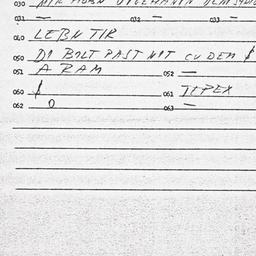 030
031 — 032 — 033 —
040 LEBN TIR
050 DI BOLT PAST NIT CU DEM $
051 A RAM 052 —
060 $ 061 TIPEX
062 0 063 —